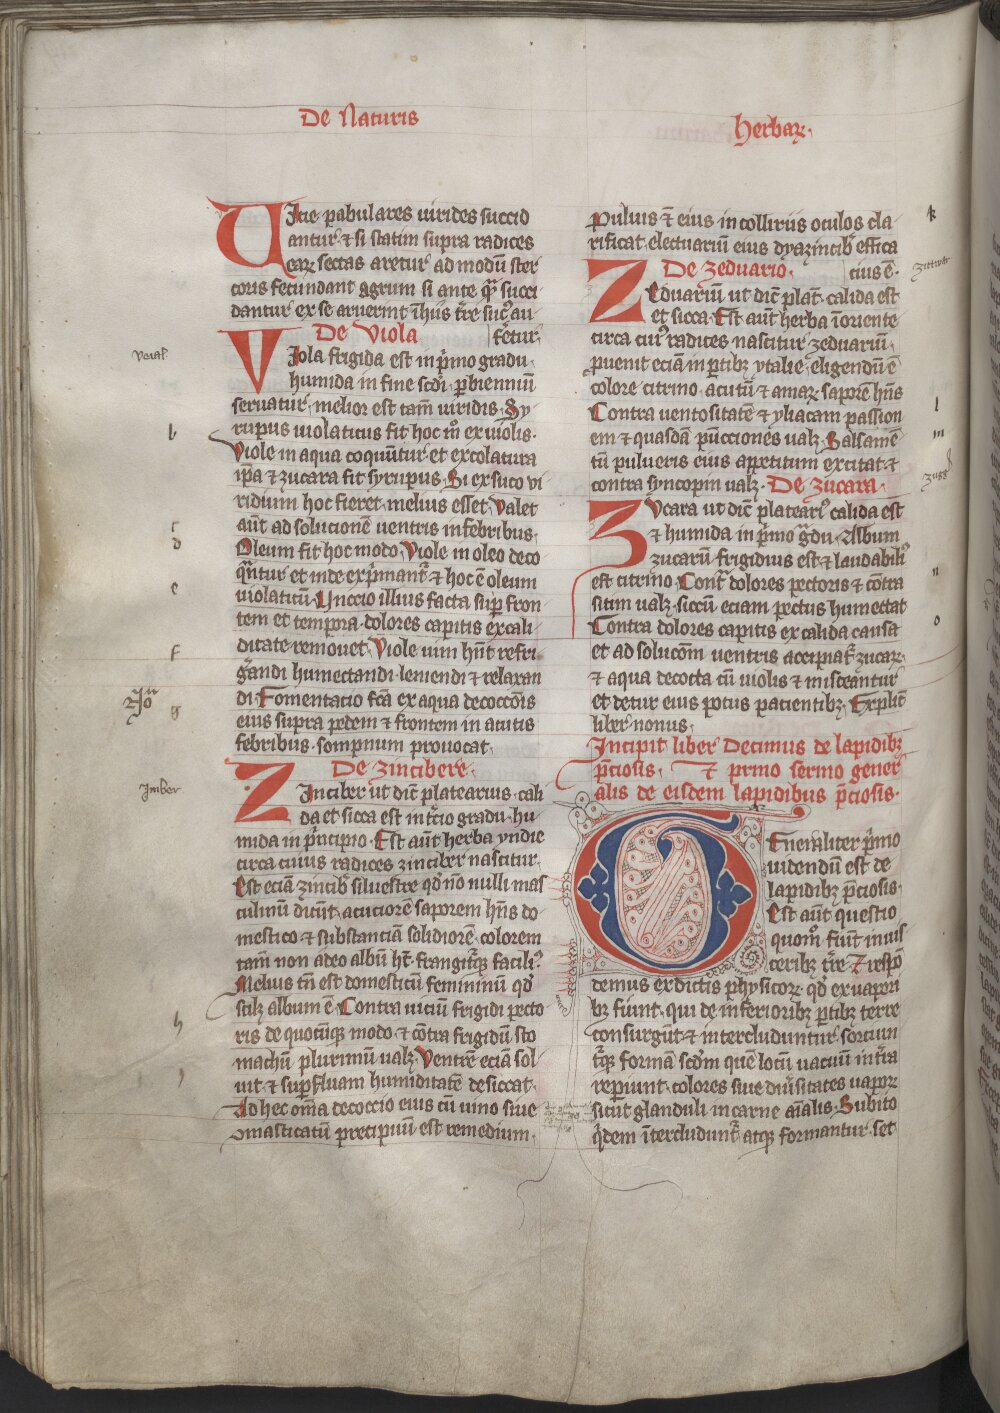 De Naturis
Herbaꝝ.
UIcie pabulares uirides succid
antur̄ ⁊ si statim supra radices
earꝝ sectas aretur̄ ad modū ster
coris fecundant agrum si ante q̄ succi
dantur ex se aruerint īhus t̄re suc̉ au
De Viola
fc̄tur.
VIola frigida est in p̄mo gradu
humida in fine scd̄i. p̱ bienniū
seruatur. melior est tam̄ uiridis. Sy
rupus uiolaticus fit hoc m̊ ex uiolis.
Viole in aqua coquūtur. et excolatura
ip̄a ⁊ zucara fit syrupus. Si ex suco vi
ridium hoc fieret. melius esset. Valet
aūt ad solucionē uentris in febribus.
Oleum fit hoc modo. Viole in oleo deco
qn̄tur et inde exp̄mant̄ ⁊ hoc ē oleum
uiolaticū. Unccio illius facta sup̱ fron
tem et tempora. dolores capitis ex cali
ditate remouet. Viole uim hn̄t refri
gandi humectandi. leniendi ⁊ relaxan
di. Fomentacio fc̄a ex aqua decoccōis
eius supra pedem ⁊ frontem in acutis
febribus. sompnum prouocat.
De zincibere.
ZInciber ut dic̄t platearius. cali
da et sicca est in t̄cio gradu. hu
mida in p̄ncipio. Est aūt herba yndie
circa cuius radices zinciber nascitur.
Est eciā zincib̄ siluestre qd̓ nō nulli mas
culinū dicūt. acuciorē saporem hn̄s do
mestico ⁊ substanciā solidiorē. colorem
tam̄ non adeo albū hꝫ. frangit̄qꝫ facilỉ.
Melius tn̄ est domesticū femininū qd̓
scilꝫ album ē. Contra uiciū frigidi pecto
ris de quocūqꝫ modo. ⁊ cōtra frigidū sto
machū plurimū ualꝫ. Ventrē eciā sol
uit ⁊ sup̱fluam humiditatē desiccat.
Ad hec om̄a decoccio eius cū uino siue
masticatū precipuū est remedium.
puluis ⁊ eius in collirius oculos cla
rificat. electuariū eius dyazincib̄ effica
cius ē.
De zeduario.
ZEduariū ut dic̄t plat̄. calida est
et sicca. Est aūt herba ī oriente
circa cuỉ radices nascitur zeduariū.
puenit eciā in p̱tibꝫ ytalie. eligendū ē
colore citrino. acutū ⁊ amaꝝ saporē hn̄s
Contra uentositatē ⁊ yliacam passion
em ⁊ quasdā pūcciones ualꝫ. Salsamē
tū pulueris eius appetitum excitat. ⁊
contra syncopim ualꝫ. De zucara.
ZUcara ut dic̄t platearỉ calida est
⁊ humida in p̄mo ḡdu. Album
zucarū frigidius est ⁊ laudabilỉ
est citrino. Cont̄ dolores pectoris ⁊ cōtra
sitim ualꝫ. siccū eciam pectus humectat
Contra dolores capitis ex calida causa
et ad solucōm uentris accipiat̄ zucaꝝ.
⁊ aqua decocta cū uiolis ⁊ misceantur
et detur eius potus pacientibꝫ. Explic̄
liber nonus.
Incipit liber Decimus de lapidibꝫ
p̄ciosis. Et primo sermo gener
alis de eisdem lapidibus p̄ciosis.
GEneraliter p̄mo
uidendū est de
lapidibꝫ p̄ciosis.
Est aūt questio
quom̊ fiunt in uis
ceribꝫ t̄re. ⁊ respō
demus ex dictis physicoꝝ. qd̓ ex uapori
bꝫ fiunt. qui de inferioribꝫ p̱tibꝫ terre
consurgūt ⁊ intercluduntur. sorciun
t̄qꝫ formā scd̄m quē locū uacuū in t̄ra
repiunt. colores siue diu̓sitates uapoꝝ
sicut glanduli in carne aīalis. Subito
q̓dem īterclud unt̄ atqꝫ formantur. set
veial
b
c
d
e
f
g
Imber
h
k
zittwer
l
m
n
o